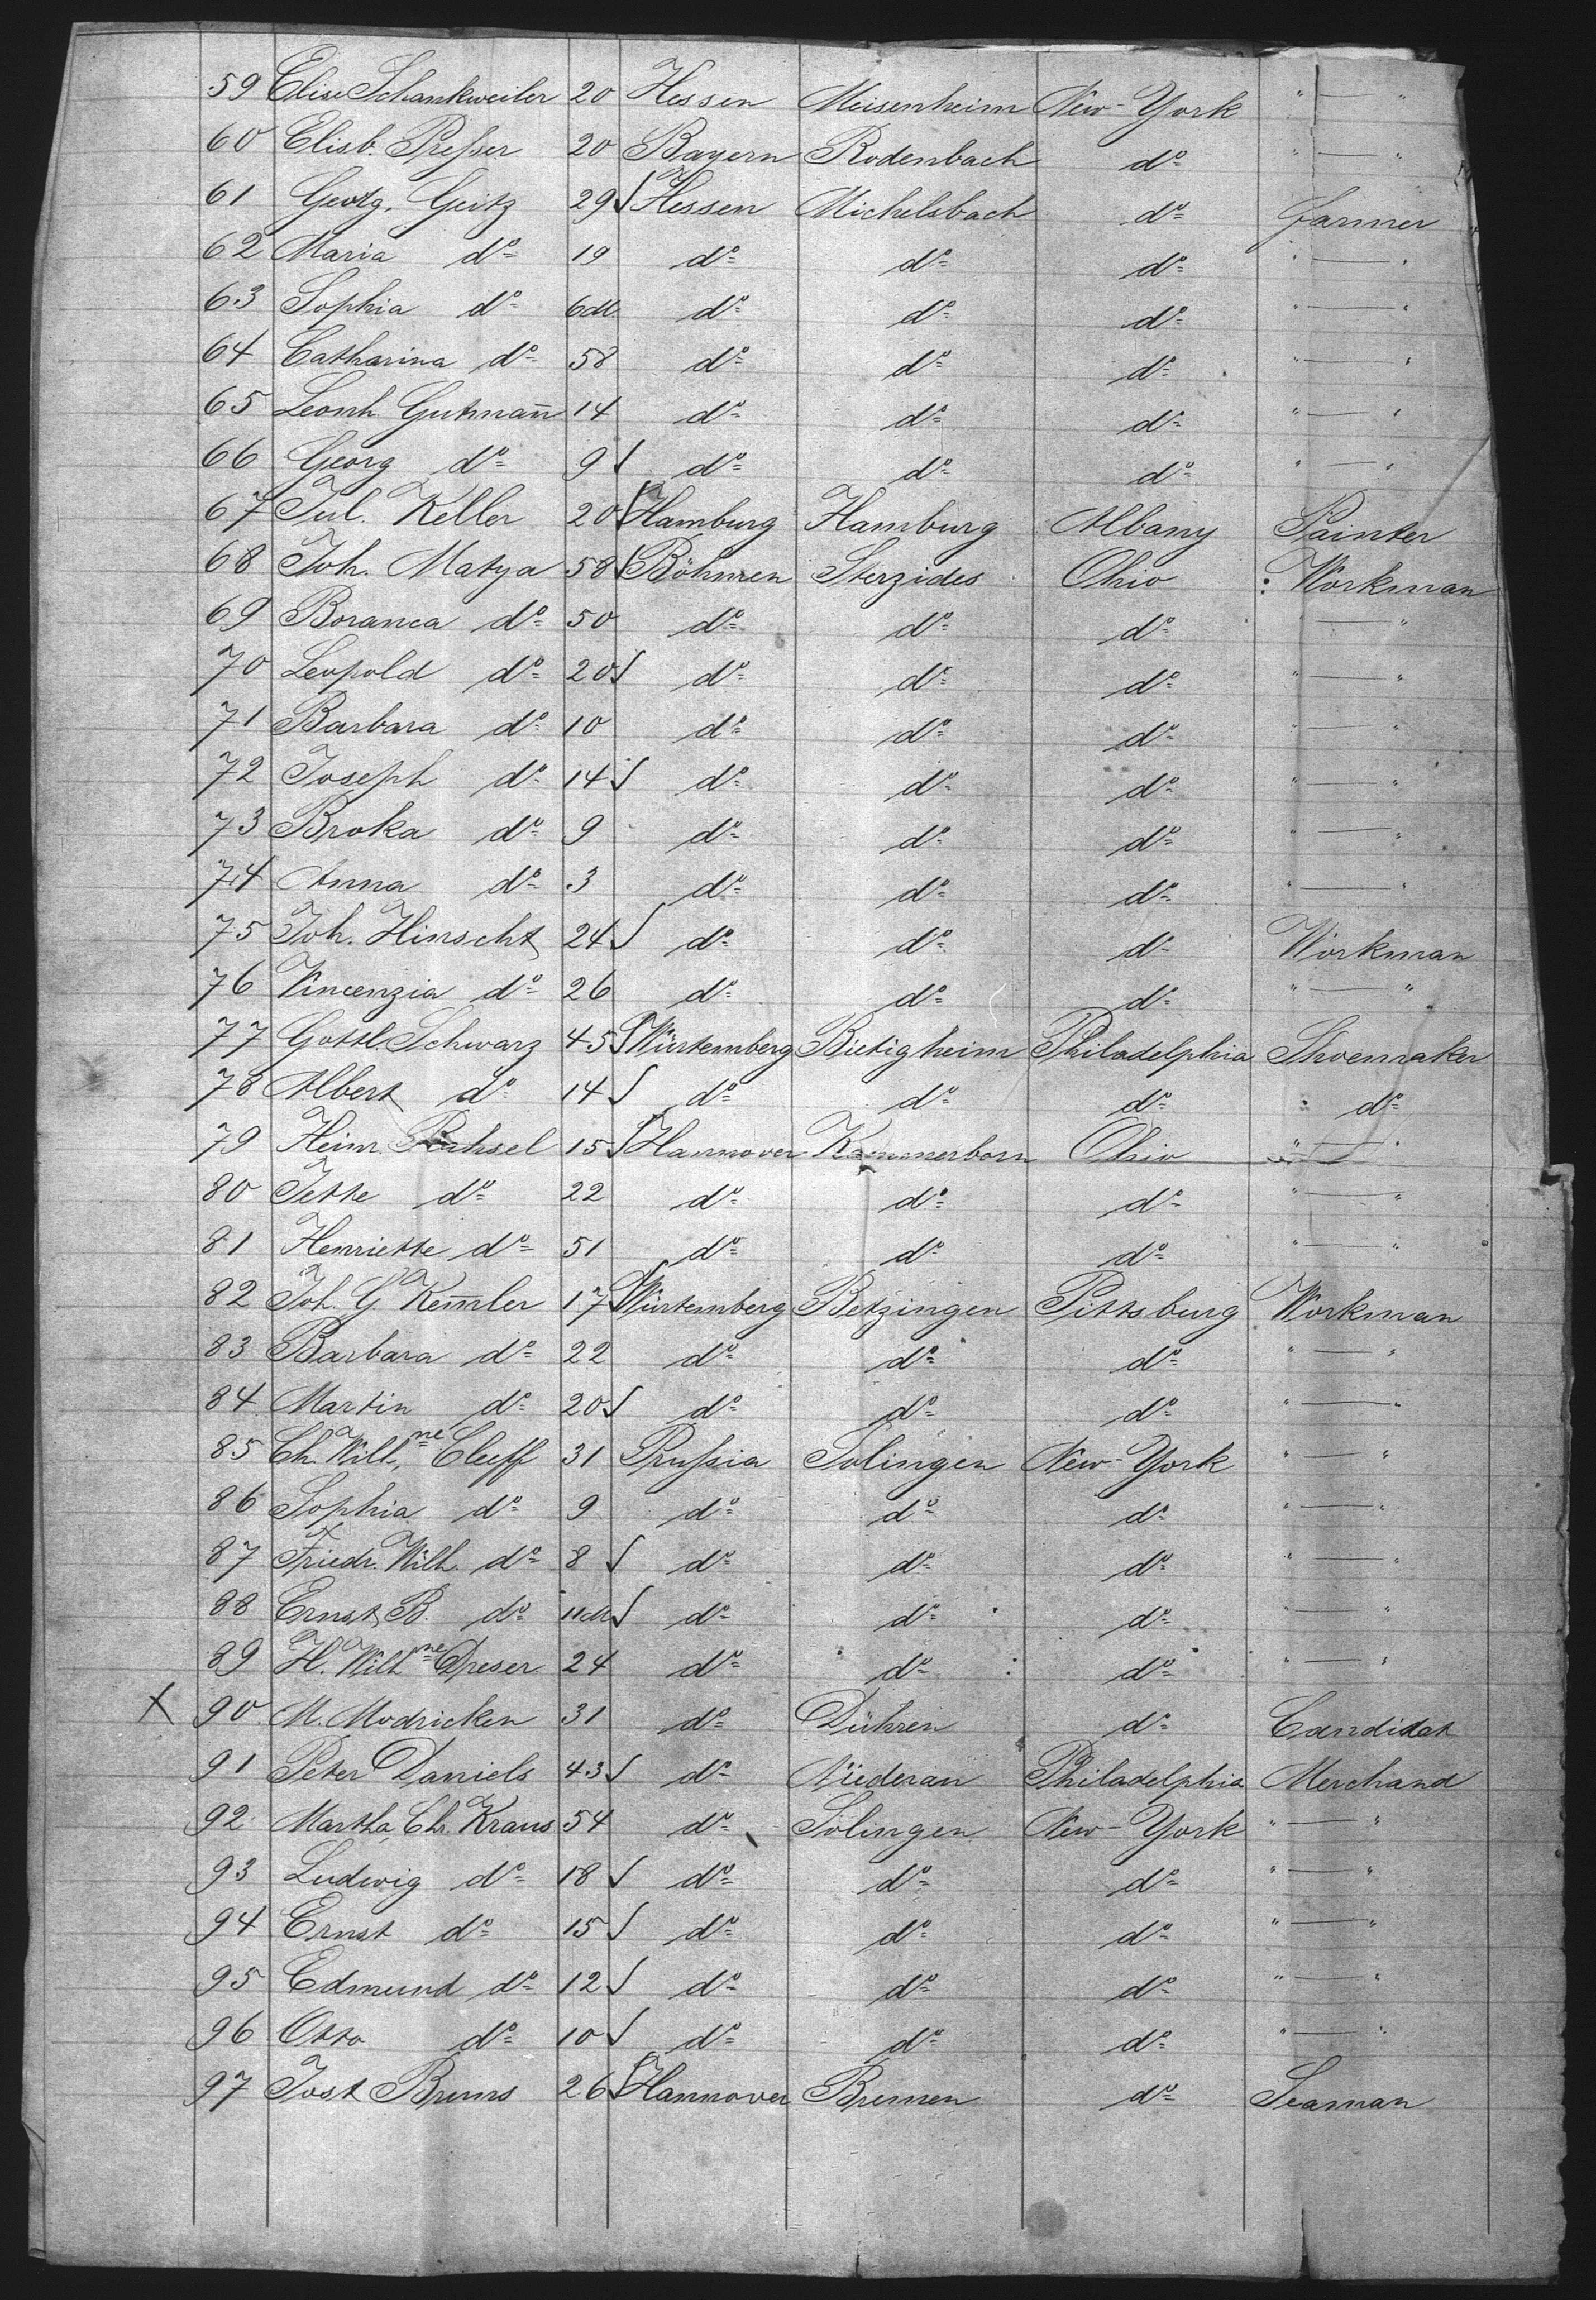 59 Elise Schankweiler 20 Hessen Meisenheim New-York " — "
60 Elisb. Preſser 20 Bayern Rodenbach do " — "
61 Georg. Geitz 29 √ Hessen Michelsbach do farmer
62 Maria do 19 do do do " — "
63 Sophia do 6M. do do do " — "
64 Catharina do 58 do do do " — "
65 Leonh. Gutmañ 14 do do do " — "
66 Georg do 9 √ do do do " — "
67 Jul. Keller 20 √ Hamburg Hamburg Albany Painter
68 Joh. Matya 58 √ Böhmen Sterzides Ohio : Workman
69 Boranca do 50 do do do " — "
70 Leopold do 20 √ do do do " — "
71 Barbara do 10 do do do " — "
72 Joseph do 14 √ do do do " — "
73 Broka do 9 do do do " — "
74 Anna do 3 do do do " — "
75 Joh. Hinscht 24 √ do do do Workman
76 Vincenzia do 26 do do do " — "
77 Gottl. Schwarz 45 √ Würtemberg Bietigheim Philadelphia Shoemaker
78 Albert do 14 √ do do do do
79 Heinr. 15 √ Hannover Ohio " — "
80 Jette do 22 do do do " — "
81 Henriette do 51 do do do " — "
82 Joh. G. Kem̃ler 17 √ Würtemberg Betzingen Pittsburg Workman
83 Barbara do 22 do do do " — "
84 Martin do 20 √ do do do " — "
85 Ch. Will.ne Cleff 31 Pruſsia Solingen New-York " — "
86 Sophia do 9 do do do " — "
87 Friedr. Wilh. do 8 √ do do do " — "
88 Ernst B. do 11M √ do do do " — "
89 H. Wilhne Dreser 24 do do do " — "
X 90 M. Modricken 31 do Dühren do Candidat
91 Peter Daniels 43 √ do Niederau Philadelphia Merchand
92 Martha Chr. Kraus 54 do Solingen New-York " — "
93 Ludwig do 18 √ do do do " — "
94 Ernst do 15 √ do do do " — "
95 Edmund do 12 √ do do do " — "
96 Otto do 10 √ do do do " — "
97 Jost Bruns 26 √ Hannover Bremen do Seaman